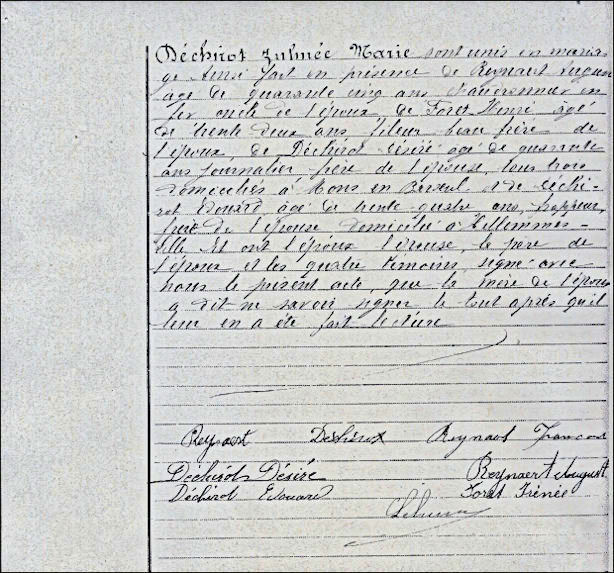 Déchirot Zulmée Marie sont unis en maria-
ge Ainsi fait en présence de Reynaert August
agé de quarante cinq ans chaudronnier en
fer oncle de l'époux de Foret Irénée, agé
de trente deux ans fileur beau frère de
l'époux de Déchirot Désiré agé de quarante
ans journalier, frère de l'épouse, tous trois
domiciliés à Mons en Barœul et de Déchi-
rot Edouard agé de trente quatre ans, frappeur,
frère de l'épouse domicilié à Hellemmes-
Lille Et ont l'époux l'épouse, le père de
l'époux et les quatre témoins, signé avec
nous le présent acte, que la mère de l'époux
a dit ne savoir signer le tout après qu'il
leur en a été fait lecture
Reynaert Deshirox Reynaert François
Déchirot Désiré Reynaert August
Déchirot Edouard Foret Irénée